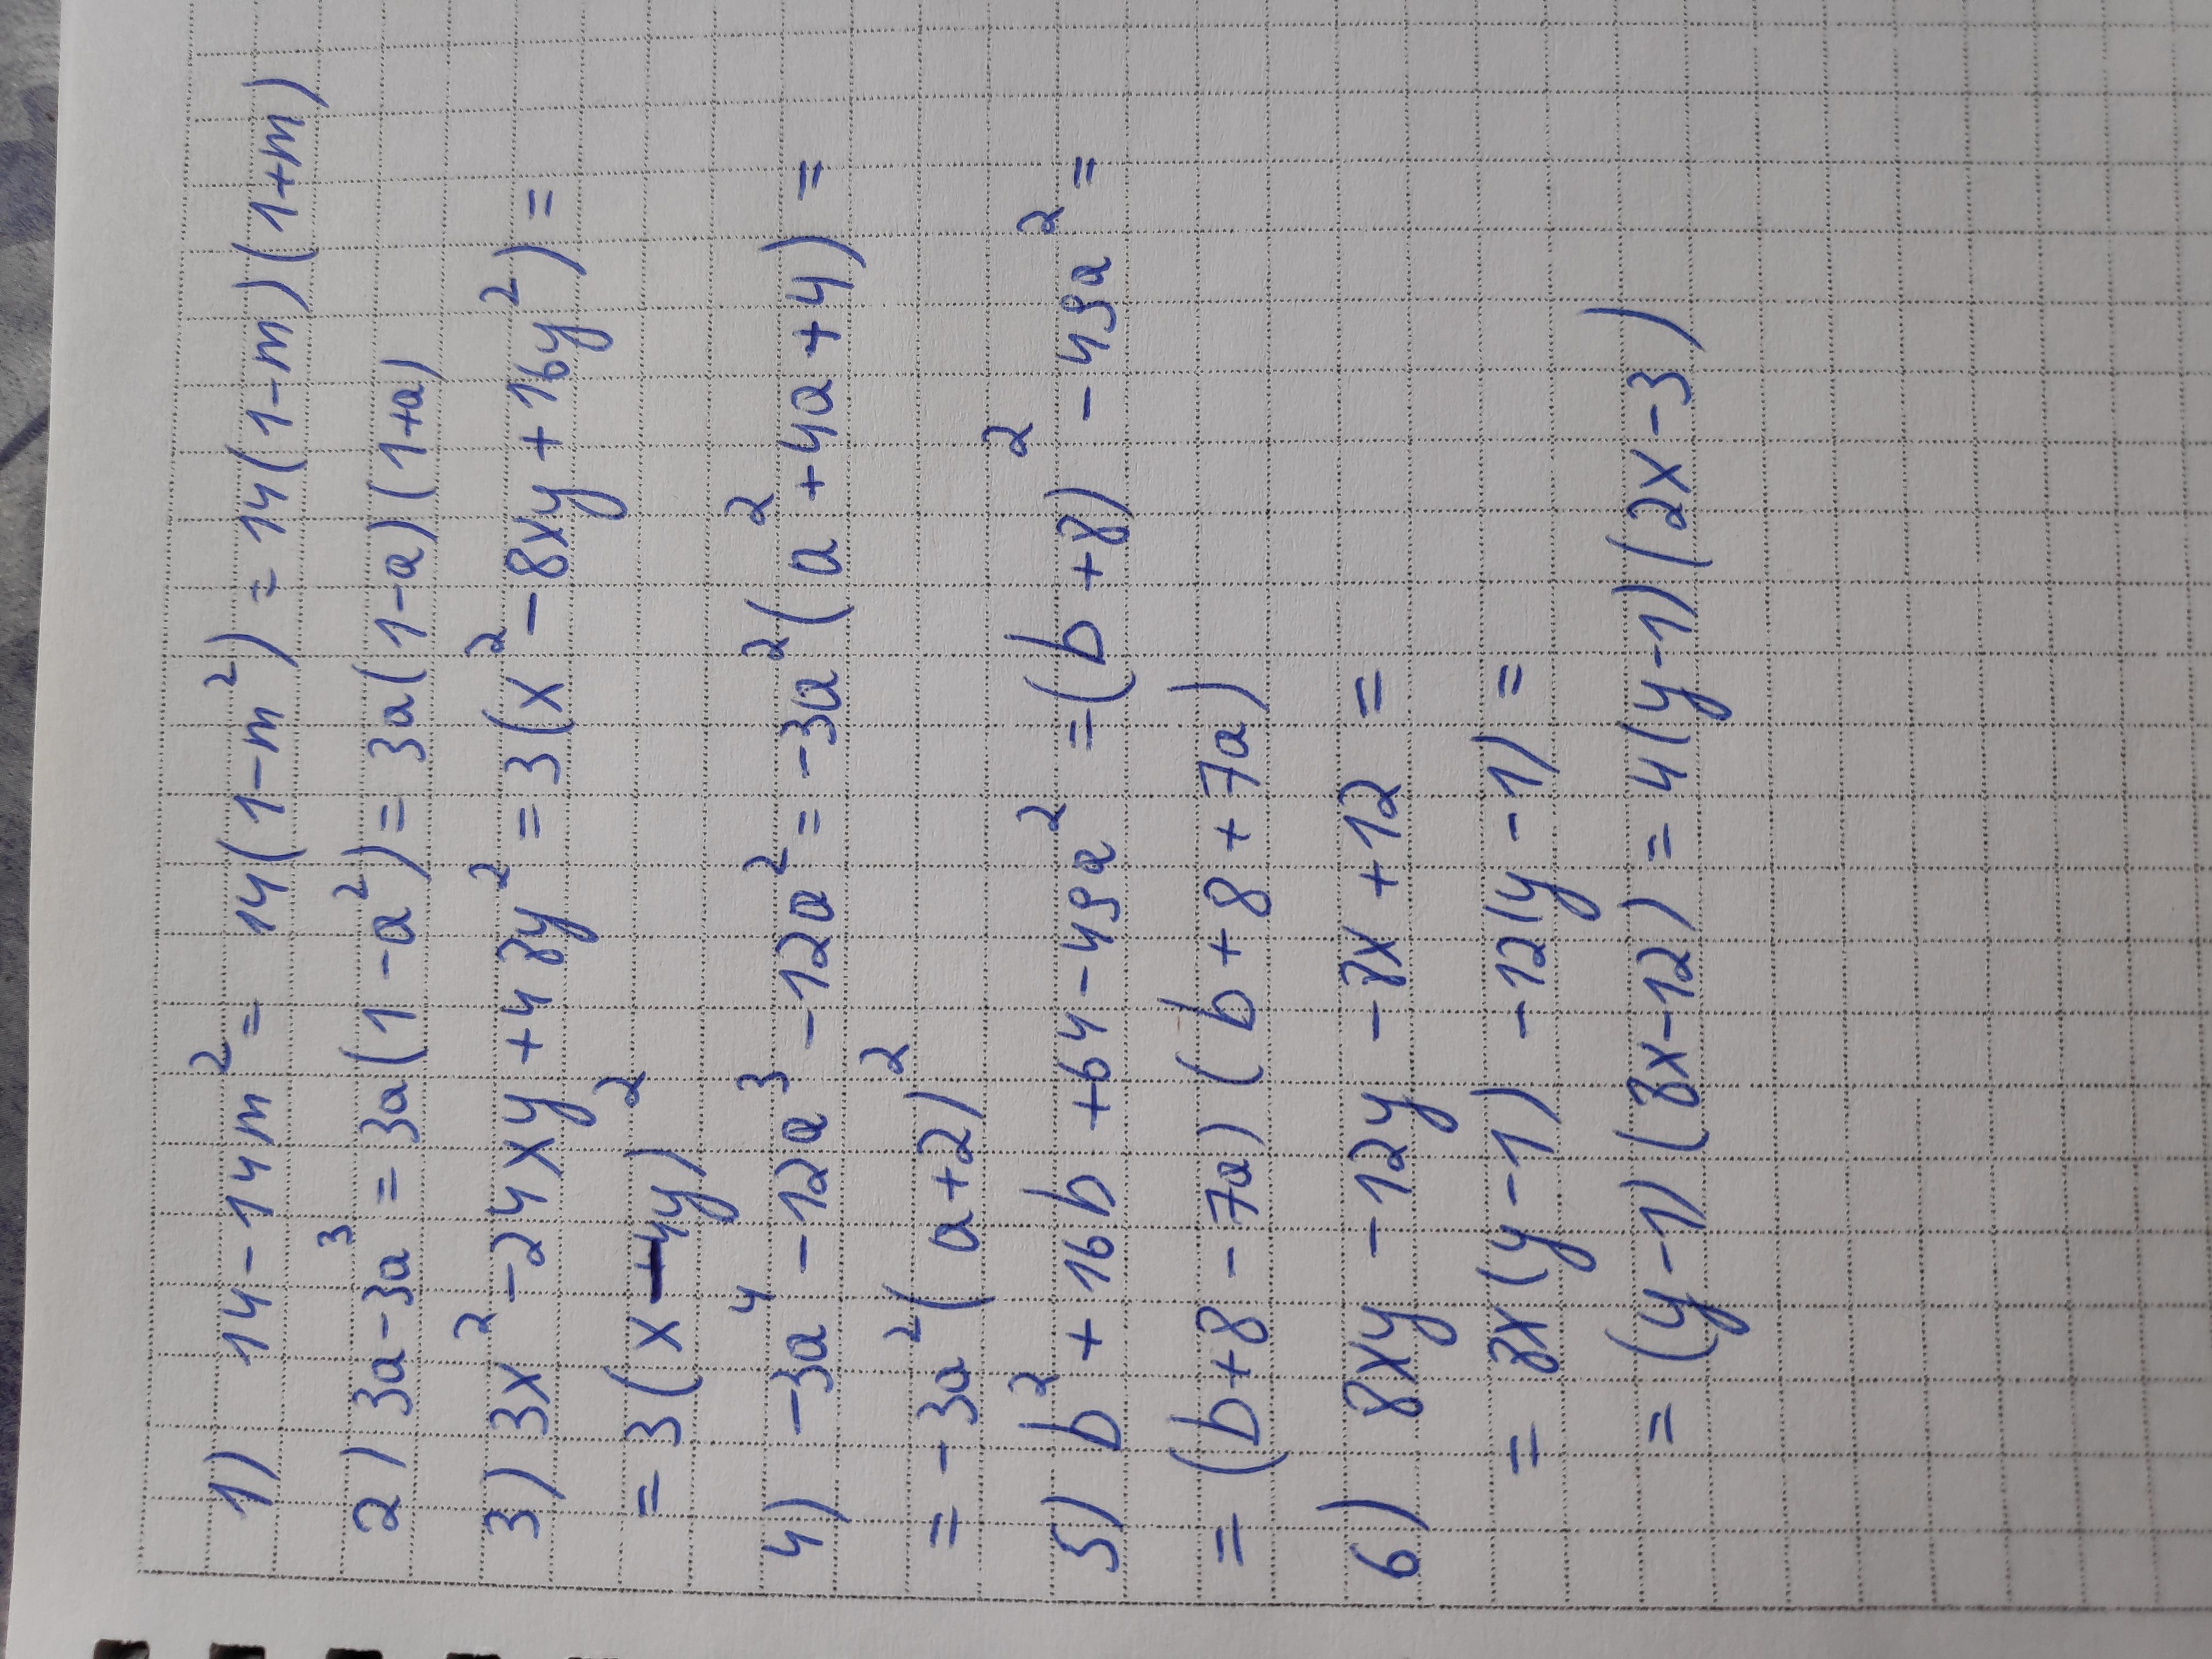 1) 14-14m²= 14(1-m²) = 14(1-m)(1+m)
2) 3a-3a³ = 3a(1-a²) = 3a(1-a)(1+a)
3) 3x²-24xy+48y² = 3(x²-8xy+16y²) =
= 3(x-4y)²
4) -3a⁴-12a³-12a² = -3a²(a²+4a+4) =
= -3a²(a+2)²
5) b²+16b+64-49a² =(b+8)²-49a² =
= (b+8-7a)(b+8+7a)
6) 8xy-12y-8x+12 =
= 8x(y-1)-12(y-1) =
= (y-1)(8x-12) = 4(y-1)(2x-3)